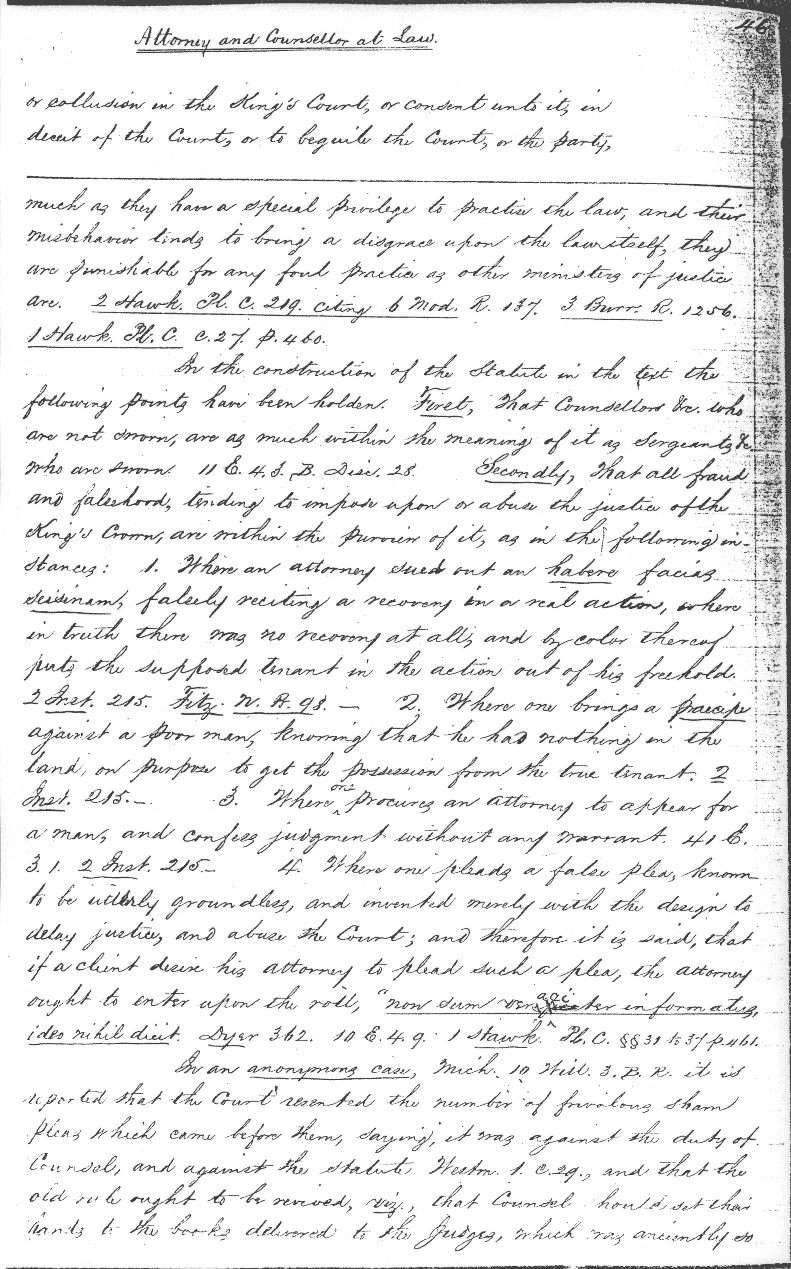 46
Attorney and Counsellor at Law.
or collusion in the King's Court, or consent unto it, in
deceit of the Court, or to beguile the Court, or the party,
much as they have a special privilege to practise the law, and their
misbehavior tends to bring a disgrace upon the law itself, they
are punishable for any foul practice as other ministers of justice
are. 2 Hawk. Pl. C. 219. citing 6 Mod. R. 137. 3 Burr. R. 1256.
1 Hawk. Pl. C. c. 27. p. 460.
In the construction of the Statute in the text the
following points have been holden. First, That Counsellors &c. who
are not sworn, are as much within the meaning of it as Sergeants &c
who are sworn. 11 E. 4. 3. B. Disc. 28. Secondly, That all fraud
and falsehood, tending to impose upon or abuse the justice of the
King's Crown, are within the purview of it, as in the following in-
stances: 1. Where an attorney sued out an habere facias
seisinam, falsely reciting a recovery in a real action, where
in truth there was no recovery at all, and by color thereof
puts the supposed tenant in the action out of his freehold.
2 Inst. 215. Fitz. N. B. 98. — 2. Where one brings a praecipe
against a poor man, knowing that he had nothing in the
land, on purpose to get the possession from the true tenant. 2
Inst. 215.— 3. Where one procures an attorney to appear for
a man, and confess judgment without any warrant. 41 E.
3. 1. 2 Inst. 215— 4. Where one pleads a false plea, known
to be utterly groundless, and invented merely with the design to
delay justice, and abuse the Court; and therefore it is said, that
if a client desire his attorney to plead such a plea, the attorney
ought to enter upon the roll, "non sum veraciter informatus,
ideo nihil dicit. Dyer 362. 10 E. 4. 9. 1 Hawk. Pl. C. §§ 31 to 37 p. 461.
In an anonymous case, Mich. 10 Will. 3. B. R. it is
reported that the Court resented the number of frivolous sham
pleas which came before them, saying, it was against the duty of
Counsel, and against the statute Westm. 1. c. 29., and that the
old rule ought to be revived, viz., that Counsel should set their
hands to the books delivered to the Judges, which was anciently so